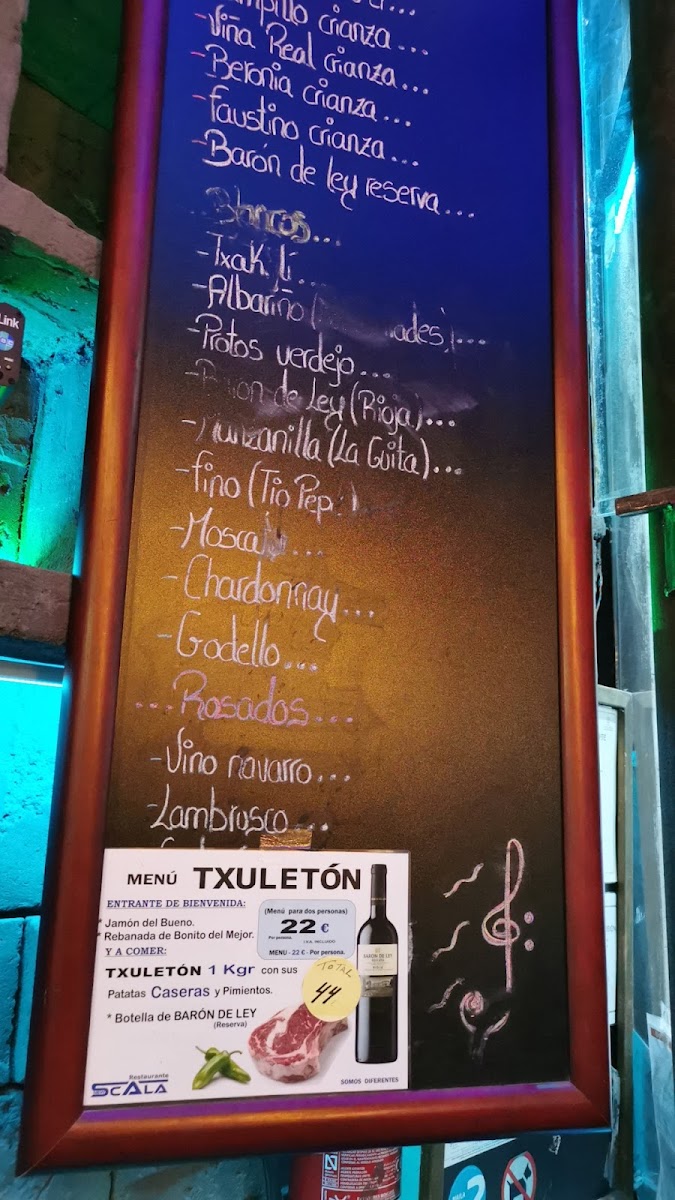 crianza...
-Viña Real crianza...
-Beronia crianza...
-Faustino crianza...
-Barón de ley reserva...
Blancos...
-Txakoli...
-Albariño
-Protos verdejo...
de Ley (Rioja)...
-Manzanilla (La Guita)...
-fino (Tio Pepe)
-Moscato...
-Chardonnay...
-Godello...
...Rosados...
-Vino navarro...
-Lambrusco...
Link
MENÚ TXULETÓN
ENTRANTE DE BIENVENIDA:
* Jamón del Bueno.
* Rebanada de Bonito del Mejor.
Y A COMER:
(Menú para dos personas)
22 €
Por persona. I.V.A. INCLUIDO
MENU - 22 € - Por persona.
TXULETÓN 1 Kgr con sus
Patatas Caseras y Pimientos.
* Botella de BARÓN DE LEY
(Reserva)
TOTAL
44
BARÓN DE LEY
Restaurante
SCALA
SOMOS DIFERENTES